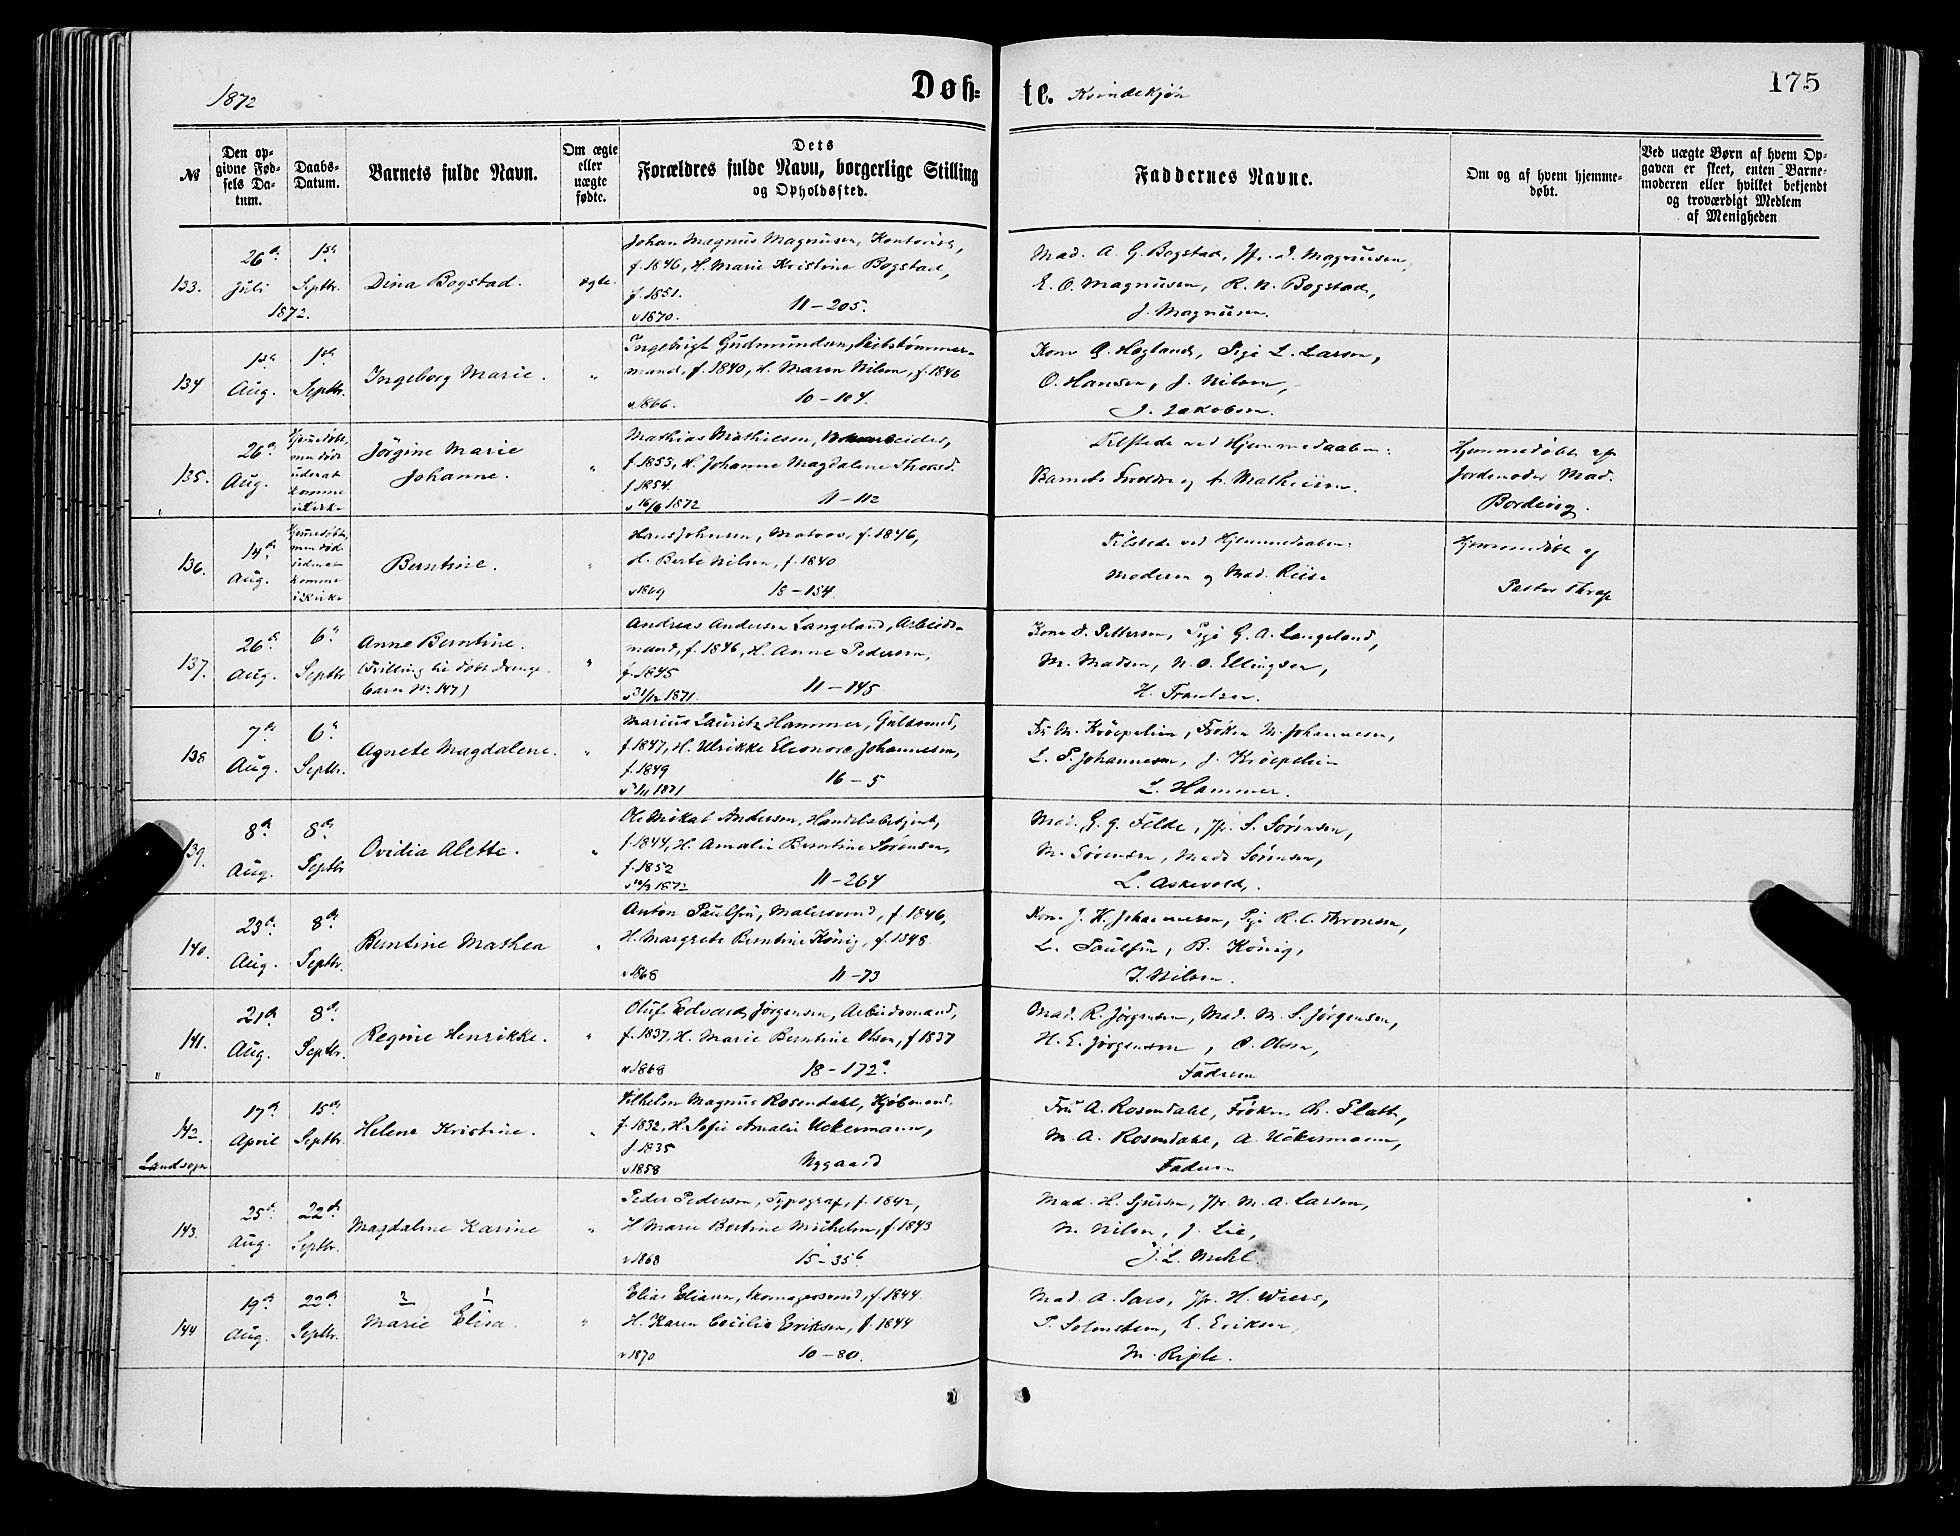 1872
Døb-
te.
Kvindekjøn
175
№
Den op-
givne Fød-
sels Da-
tum.
Daabs-
Datum.
Barnets fulde Navn.
Om ægte
eller
uægte
fødte.
Dets
Forældres fulde Navn, borgerlige Stilling
og Opholdssted.
Faddernes Navne.
Om og af hvem hjemme-
døbt.
Ved uægte Børn af hvem Op-
gaven er skeet, enten Barne-
moderen eller hvilket bekjendt
og troværdigt Medlem
af Menigheden
133.
26de
Juli
1872.
1ste
Septbr.
Dina Bogstad.
ægte.
Johan Magnus Magnusen, Kontorist,
f. 1846, H. Marie Kristine Bogstad,
f. 1851.
v 1870. 11-205.
Mad. A. G. Bogstad, Jfr. J. Magnusen,
E. O. Magnusen, R. N. Bogstad,
J. Magnusen.
134
1ste
Aug.
1ste
Septbr.
Ingeborg Marie.
"
Ingebrigt Gudmundsen, Skibstømmer-
mand, f. 1840, H. Maren Nilsen, f. 1846
v 1866. 10-104.
Kone G. Høgland, Pige L. Larsen,
O. Hansen, J. Nilsen,
J. Jakobsen.
135.
26de
Aug.
Hjemmedøbt,
men død
uden at
komme
i Kirke
Jørgine Marie
Johanne.
"
Mathias Mathiesen,
f. 1853, H. Johanne Magdalene
f. 1854.
v 16/6 1872 11-112
Tilstede ved Hjemmedaaben:
Barnets Forældre og A. Mathiesen.
Hjemmedøbt af
Jordmoder Mad.
Bordevig.
136.
14de
Aug.
Hjemmedøbt,
men død
uden at
komme
i Kirke
Berntine.
"
Hans Johnsen, Matros, f. 1846,
H. Berte Nilsen, f. 1840
v 1869 18-154.
Tilstede ved Hjemmedaaben:
Moderen og Mad. Reise
Hjemmedøbt af
Pastor Thrap
137.
26de
Aug.
6te
Septbr
Anne Berntine.
(Tvilling til døbt Drenge-
barn No. 147)
"
Andreas Andersen Langeland, Arbeids-
mand, f. 1846, H. Anne Pedersen,
f. 1845
v 31/12 1871. 11-145
Kone D. Pettersen, Pige G. A. Langeland,
M. Madsen, N. O. Ellingsen,
H. Frantsen.
138
7de
Aug.
6te
Septbr.
Agnete Magdalene.
"
Marius Lauritz Hammer, Guldsmed,
f. 1847, H. Ulrikke Eleonore Johannesen,
f. 1849
1871 16-5
Fr. M. Krøepelien, Frøken M. Johannesen,
L. P. Johannesen, J. Krøepelien
L. Hammer.
139.
8de
Aug.
8de
Septbr
Ovidia Alette.
"
Ole Mikal Andersen, Handelsbetjent,
f. 1844, H. Amalie Berntine Sørensen,
f. 1852
1872 11-264
Mad. G. G. Filde, Jfr. S. Sørensen,
M. Sørensen, Mads Sørensen,
L. Askevold.
140.
23de
Aug.
8de
Septbr.
Berntine Mathea
"
Anton Paulsen, Malersvend, f. 1846,
H. Margrete Berntine König, f. 1848
v 1868 11-73
Kone J. H. Johannesen, Pige R. C. Thronsen,
L. Paulsen, B. König,
J. Nilsen.
141.
21de
Aug.
8de
Septbr.
Regine Henrikke.
"
Oluf Edvard Jørgensen, Arbeidsmand,
f. 1837, H. Marie Berntine Olsen, f 1837
v 1868 18-172a
Mad. R. Jørgensen, Mad. M. S. Jørgensen,
H. E. Jørgensen, O. Olsen,
Faderen
142.
Landsogn
17de
April
15de
Septbr.
Helene Kristine.
"
Vilhelm Magnus Rosendahl, Kjøbmand,
f. 1832, H. Sofie Amalie Uckermann,
f. 1835
v 1858 Nygaard
Fru A. Rosendahl, Frøken Ch. Platt,
M. A. Rosendahl, A. Uckermann,
Faderen
143.
25de
Aug.
22de
Septbr.
Magdalene Karine
"
Peder Pedersen, Typograf, f. 1842,
H Marie Bertine Michelsen, f. 1843
v 1868 15-35b
Mad. H. Sjursen, Jfr. M. A. Larsen,
N. Nilsen, J. Lie,
J. L. Mehl.
144
19de
Aug.
22de
Septbr.
2 1
Marie Elisa.
"
Elias Eliasen, Skomagersvend, f. 1844.
H. Karen Cecilie Eriksen, f. 1844
v 1870 10-80.
Mad. A. Sars, Jfr. H. Wiers,
P. Solemsteen, E. Eriksen,
M. Riple.